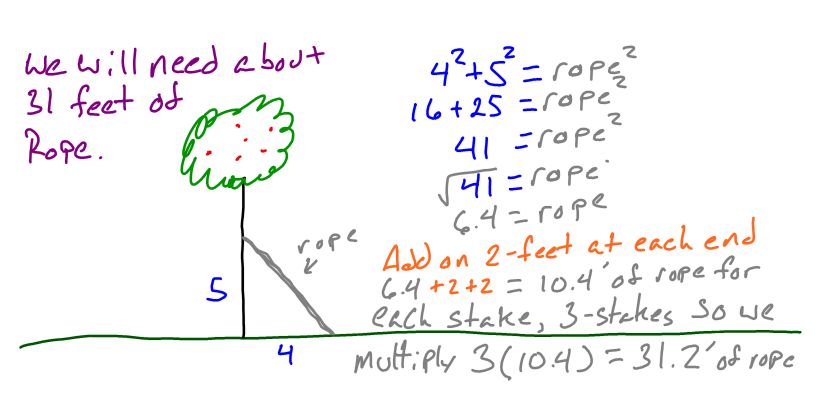 We will need about
31 feet of
Rope.
4²+5² = rope²
16+25 = rope²
41 = rope²
√41 = rope
6.4 = rope
rope
5
4
Add on 2-feet at each end
6.4 +2+2 = 10.4' of rope for
each stake, 3-stakes so we
multiply 3(10.4) = 31.2' of rope